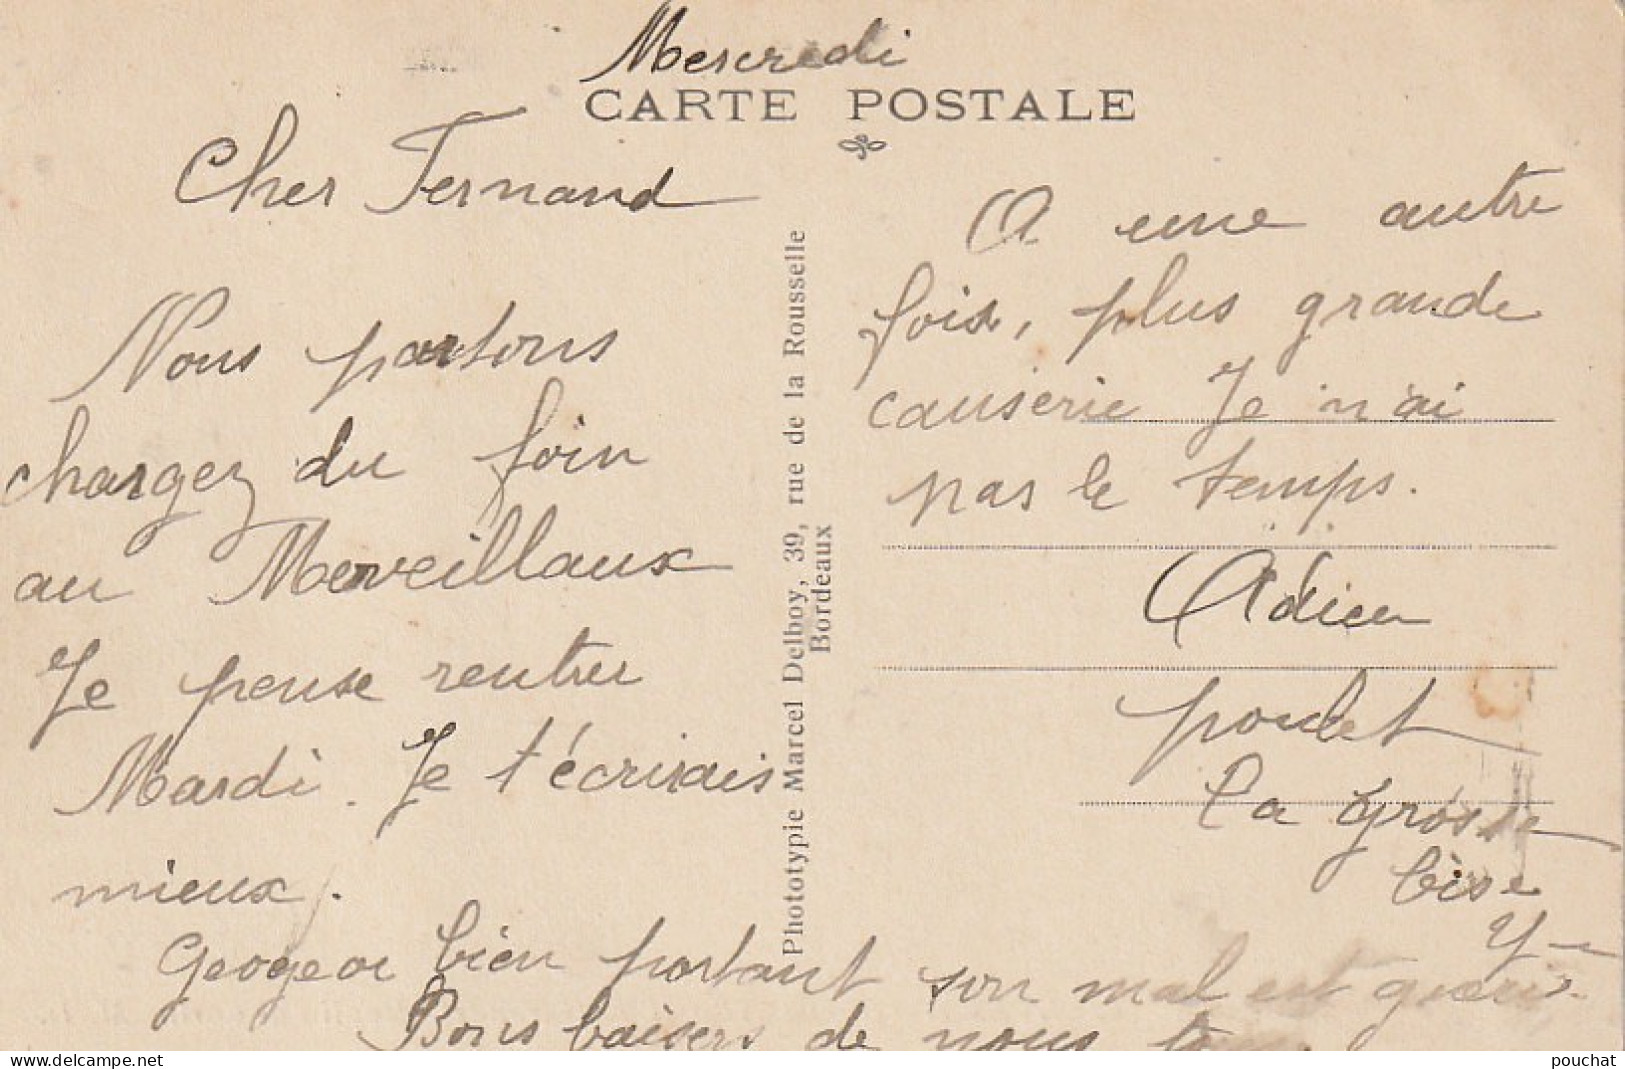 Mercredi
CARTE POSTALE
Cher Fernand
Nous partons
chargez du foin
au Merveillaux
Je pense rentrer
Mardi. Je t'écrirais
mieux.
Geogeor bien portant son mal est guéri.
Bons baisers de nous tous
Phototypie Marcel Delboy, 39, rue de la Rousselle
Bordeaux
A une autre
fois, plus grande
causerie Je n'ai
pas le temps.
Adieu
poulet
La grosse
bise
Y
www.delcampe.net
pouchat